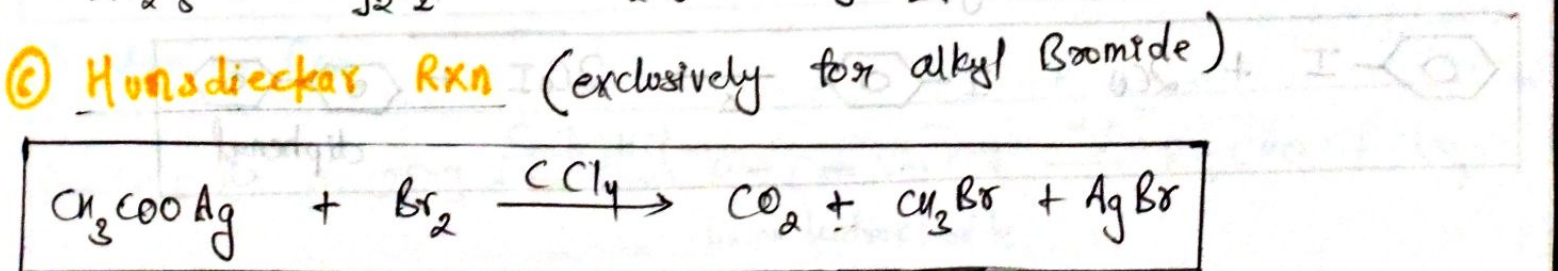 Ⓒ Hunsdieckar Rxn (exclusively for alkyl Bromide)
CH₃COOAg + Br₂ —CCl₄→ CO₂ + CH₃Br + AgBr